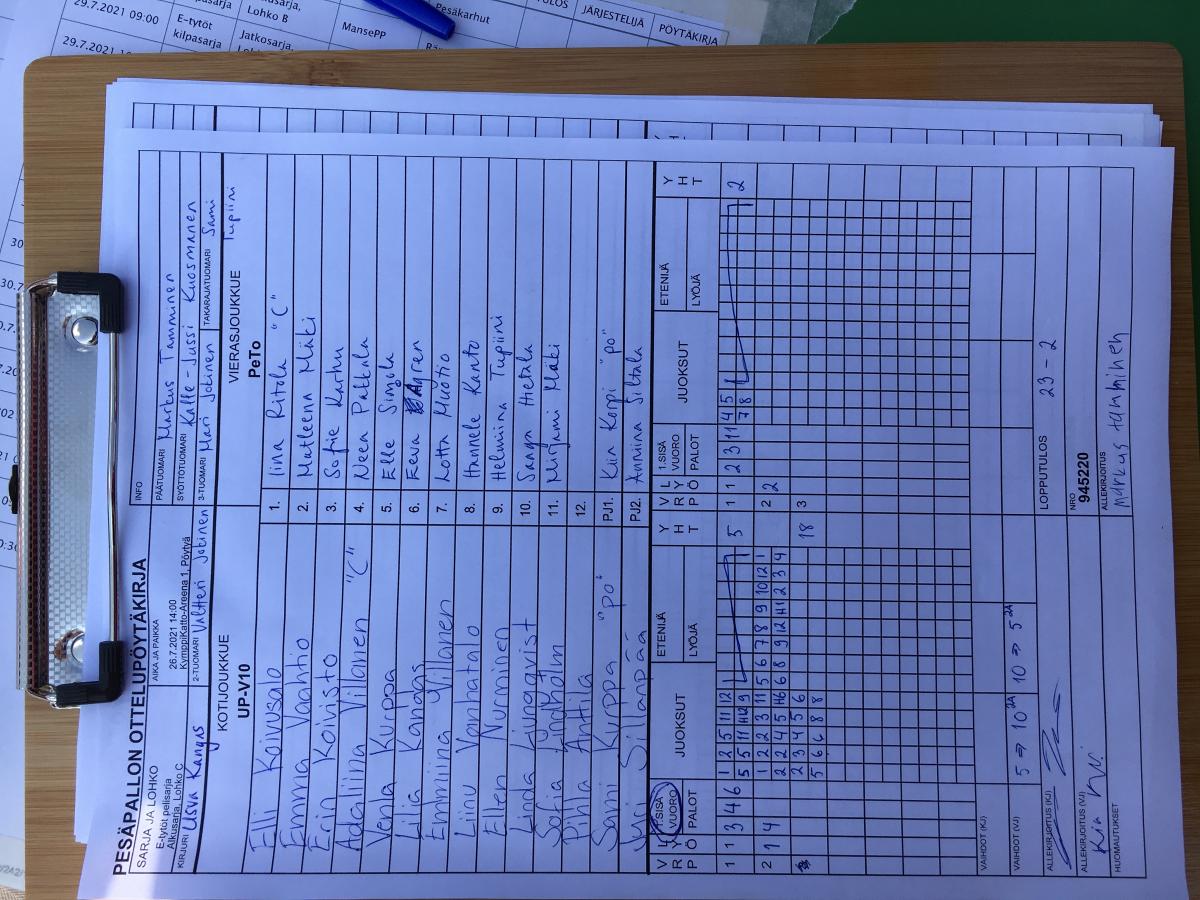 29.7.2021 09:00
E-tytöt
kilpasarja
Lohko B
MansePP
Pesäkarhut
JÄRJESTELIJÄ
PÖYTÄKIRJA
E-tytöt
kilpasarja
Jatkosarja,
PESÄPALLON OTTELUPÖYTÄKIRJA
SARJA JA LOHKO
E-tytöt pelisarja
Alkusarja, Lohko C
AIKA JA PAIKKA
26.7.2021 14:00
KymppiKatto-Areena 1, Pöytyä
INFO
PÄÄTUOMARI Markus Tamminen
SYÖTTÖTUOMARI Kalle-Jussi Kuosmanen
KIRJURI Usva Kangas 2-TUOMARI Valtteri Jokinen 3-TUOMARI Mari Jokinen TAKARAJATUOMARI Sami Tupiini
KOTIJOUKKUE VIERASJOUKKUE
UP-V10 PeTo
Elli Koivusalo 1. Iina Ritola "C"
Emma Vaahtio 2. Matleena Mäki
Erin Koivisto 3. Sofie Karhu
Adaliina Villanen "C" 4. Neea Pakkala
Venla Kurppa 5. Elle Simola
Lilja Kangas 6. Eeva Ågren
Emmiina Villanen 7. Lotta Muotio
Liinu Vanhatalo 8. Hannele Kanto
Ellen Nurminen 9. Helmiina Tupiini
Linda Ljungqvist 10. Sanga Hietala
Sofia Lindholm 11. Mirjami Mäki
Pihla Anttila 12.
Sami Kurppa "po" PJ1. Kia Korpi "po"
Jyri Sillanpää PJ2. Anniina Siltala
V L 1.SISÄ JUOKSUT ETENIJÄ Y V L 1.SISÄ JUOKSUT ETENIJÄ Y
R Y VUORO H R Y VUORO H
P Ö PALOT LYÖJÄ T P Ö PALOT LYÖJÄ T
1 1 3 4 6 1 2 5 11 12 5 1 1 2 3 11 4 5 2
5 5 11 12 9 7 8
2 1 4 1 2 2 3 11 5 6 7 8 9 10 12 1 2 2
2 2 4 5 11 6 6 8 9 12 11 2 3 4
3 2 3 4 5 6 18 3
5 6 6 8 8
VAIHDOT (KJ)
VAIHDOT (VJ) 5 => 10 2A 10 => 5 2A
ALLEKIRJOITUS (KJ) LOPPUTULOS 23 - 2
ALLEKIRJOITUS (VJ) NRO
945220
HUOMAUTUKSET ALLEKIRJOITUS
Markus Tamminen